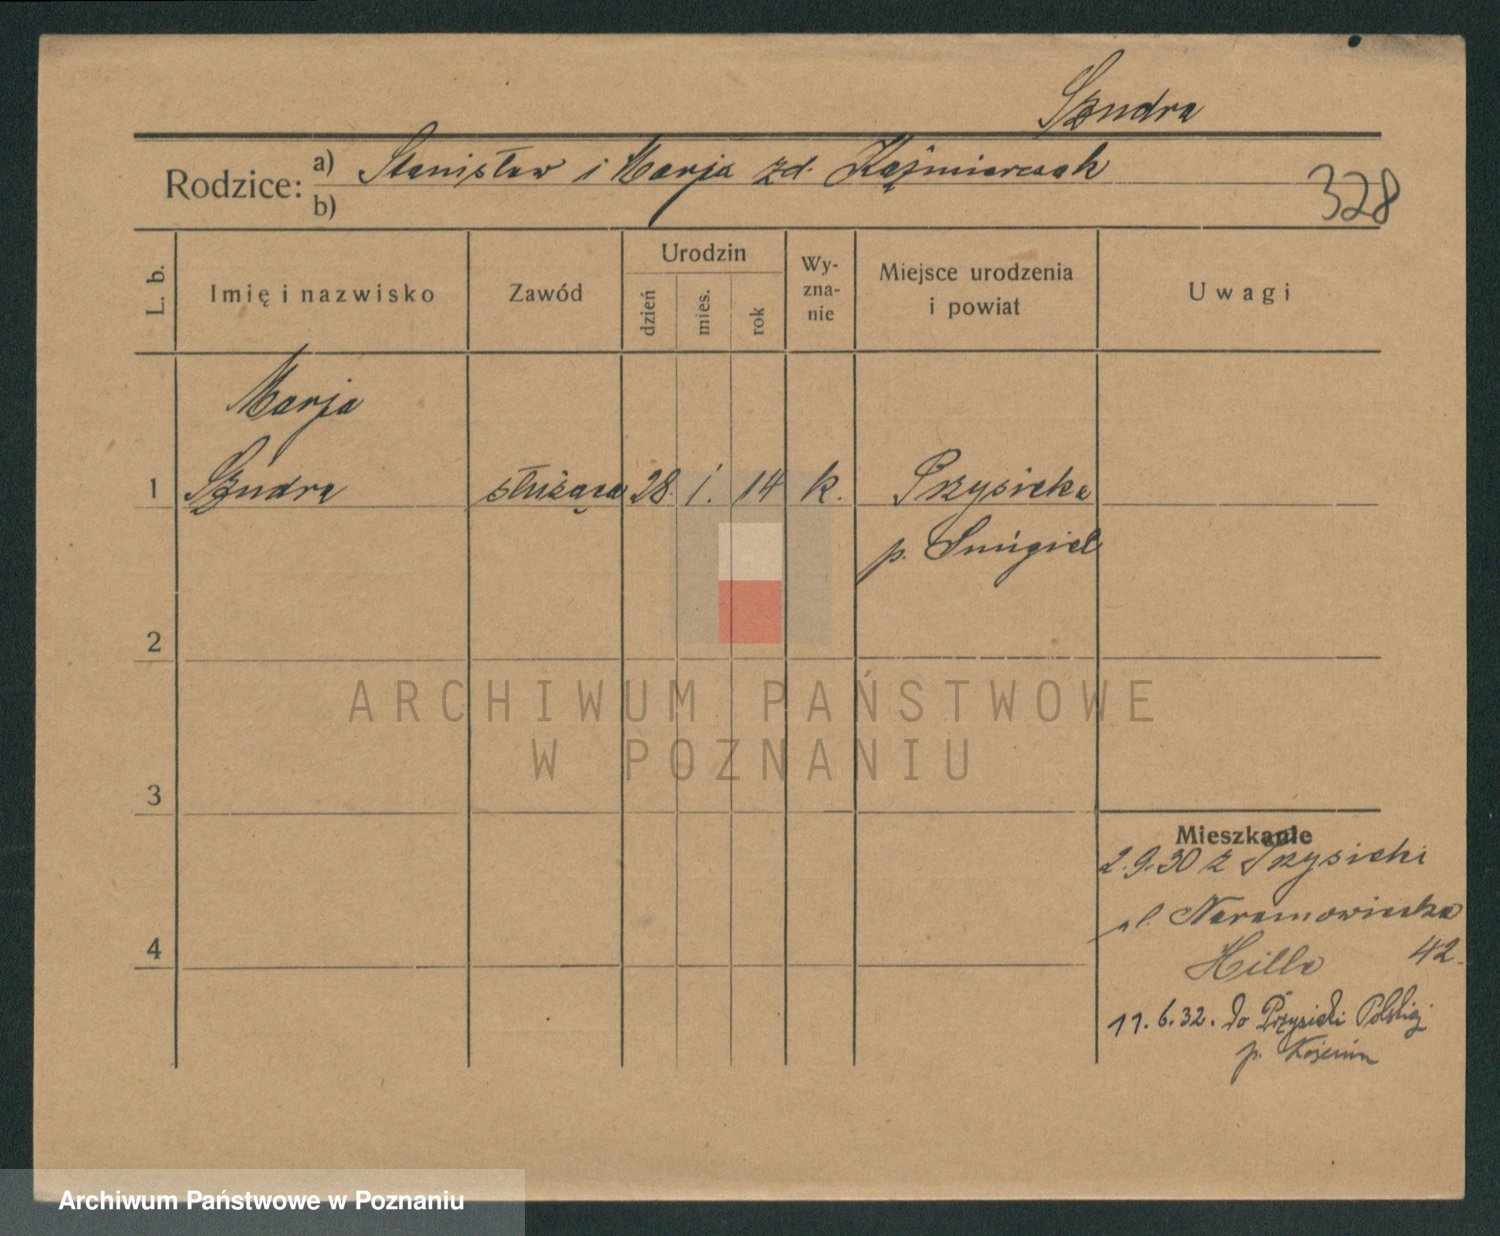 Szudra
Rodzice: a) Stanisław i Marja zd. Kaźmierczak
b)
328
L. b.
Imię i nazwisko
Zawód
Urodzin
dzień
mies.
rok
Wy-
zna-
nie
Miejsce urodzenia
i powiat
Uwagi
Marja
1 Szudra służąca 28. 1. 14 k. Przysieka
p. Śmigiel
2
ARCHIWUM PAŃSTWOWE
W POZNANIU
3
Mieszkanie
2.9.30 z Przysieki
ul. Naramowicka
42.
4
11.6.32. do Przysieki Polskiej
p.
Archiwum Państwowe w Poznaniu